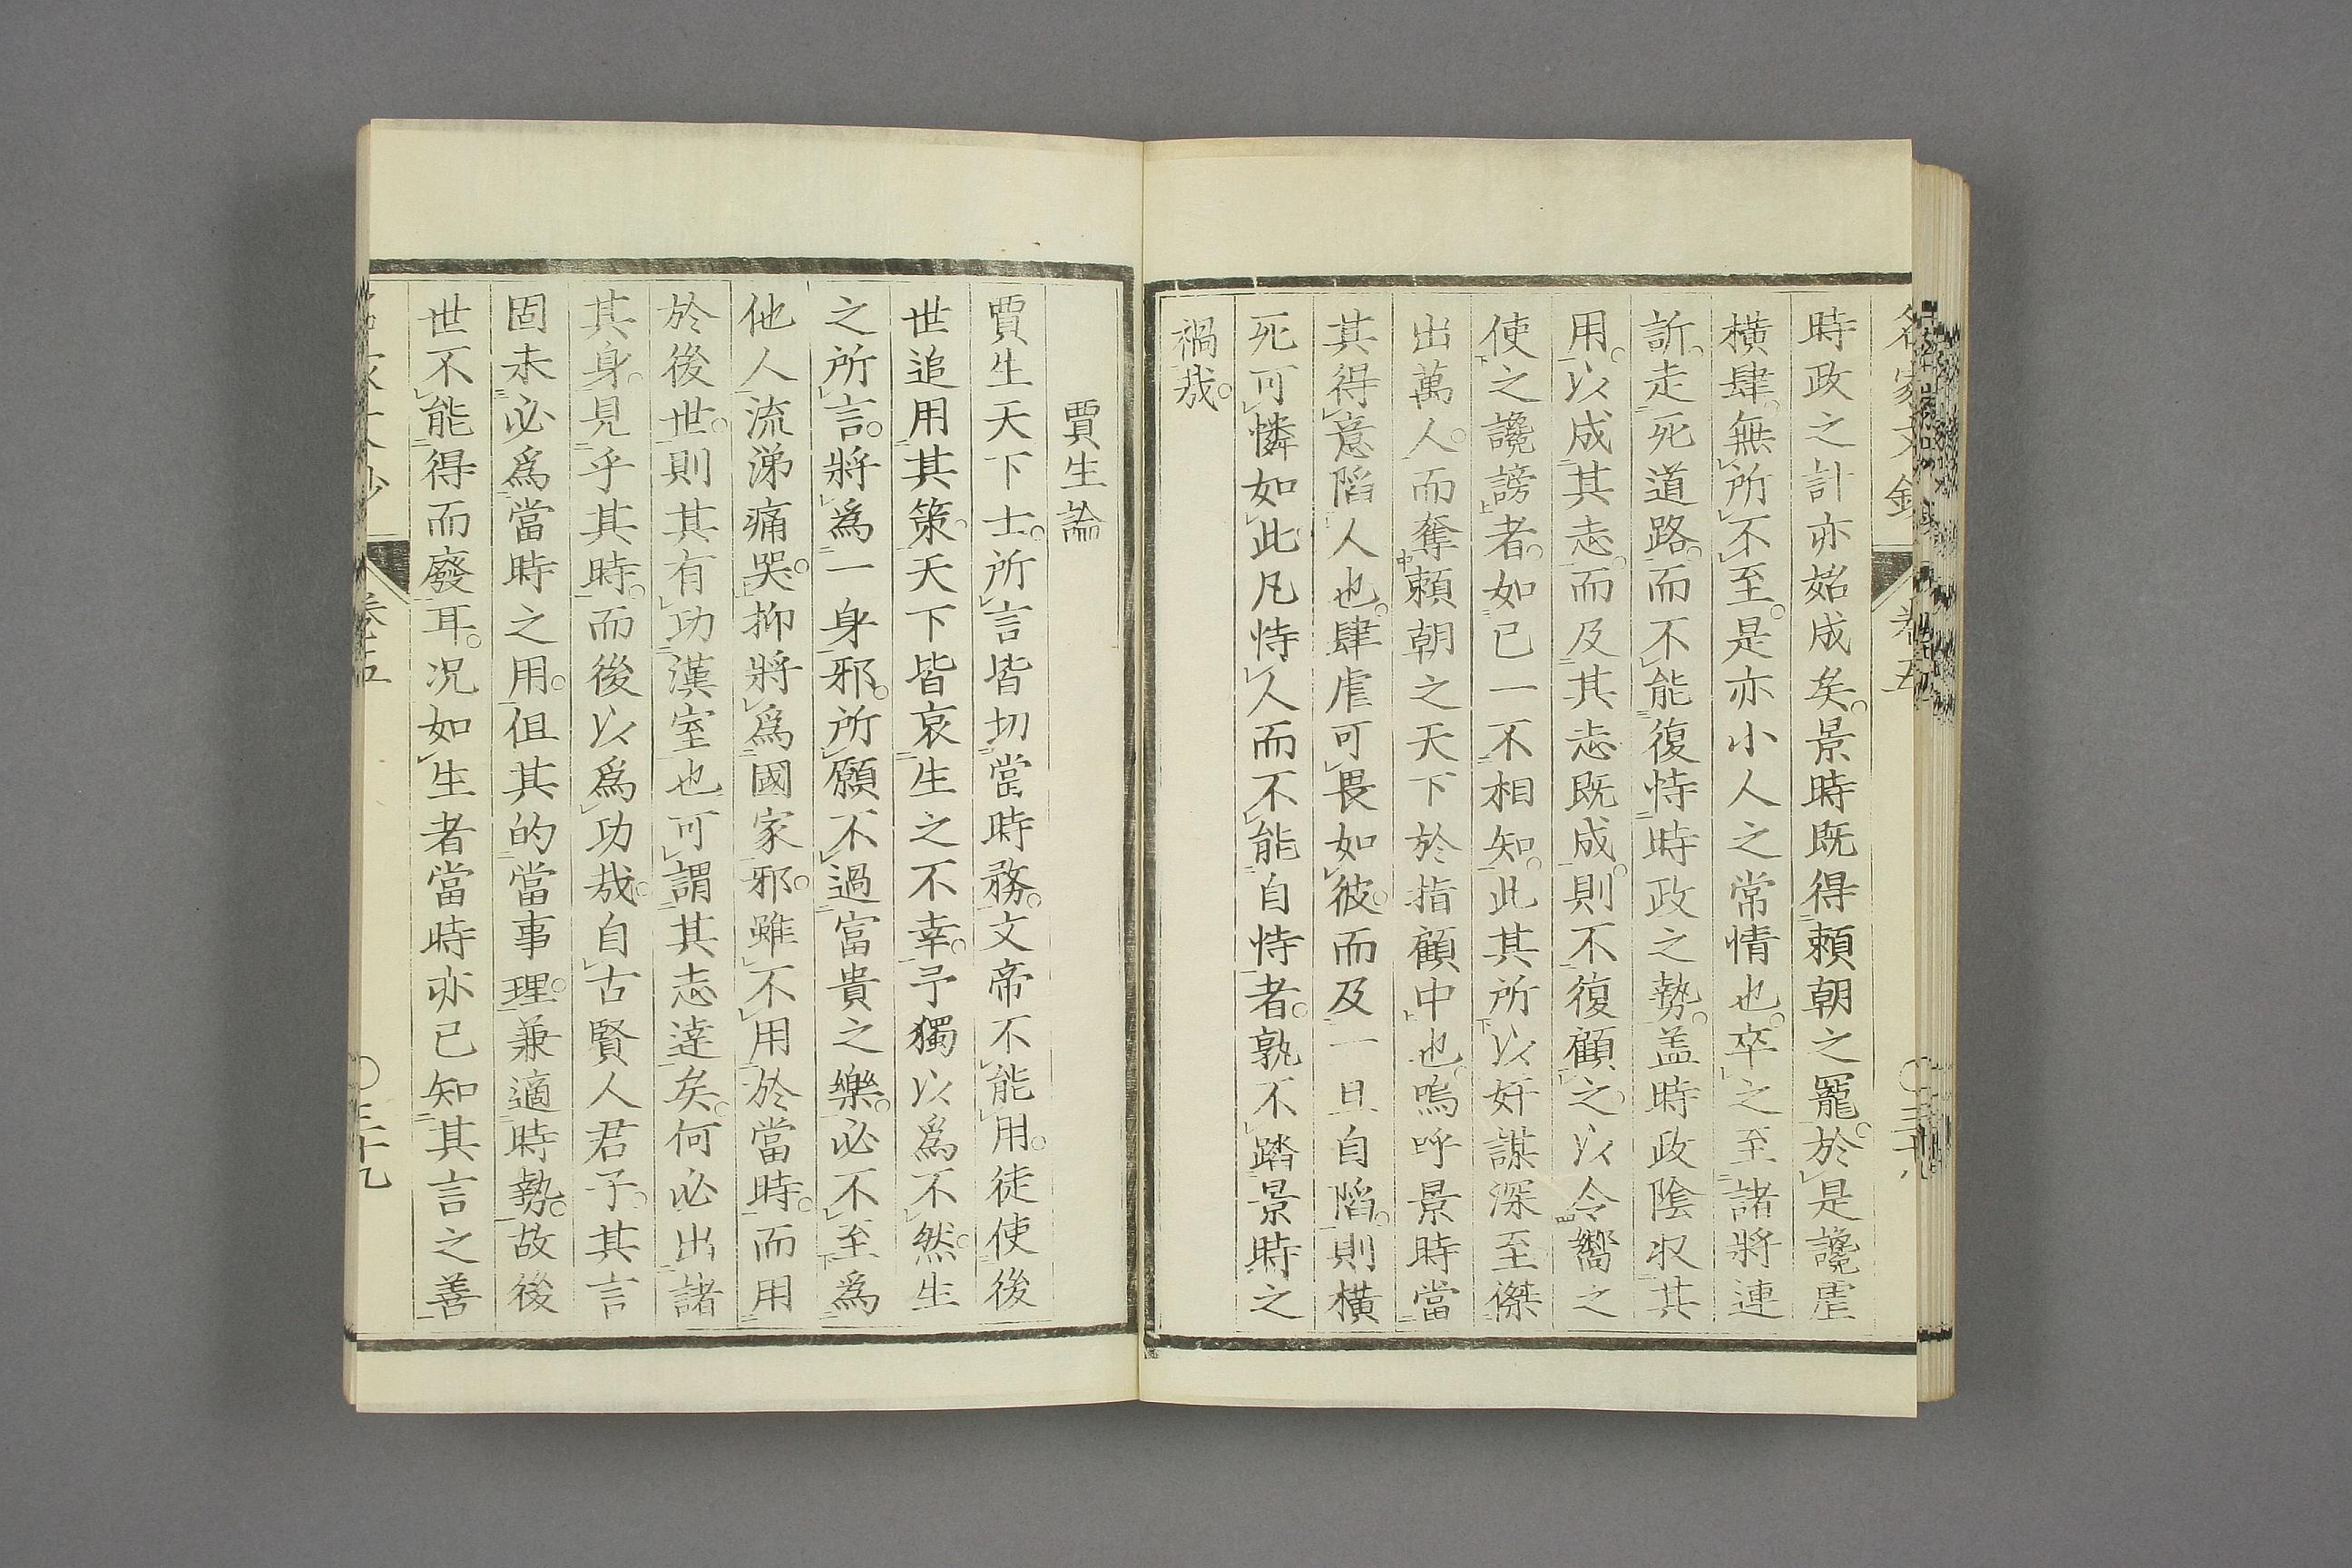 時政之計亦始成矣。景時既得賴朝之寵。於是讒虐
橫肆。無所不至。是亦小人之常情也。卒之至諸將連
訴。走死道路。而不能復恃時政之勢。盖時政陰収其
用。以成其志。而及其志既成。則不復顧之。以令嚮之
使之讒謗者。如已一不相知。此其所以奸謀深至傑
出萬人。而奪賴朝之天下於指顧中也。嗚呼景時當
其得意陷人也。肆虐可畏如彼。而及一旦自陷。則橫
死可憐如此。凡恃人而不能自恃者。孰不踏景時之
禍哉。
賈生論
賈生天下士。所言皆切當時務。文帝不能用。徒使後
世追用其策。天下皆哀生之不幸。予獨以爲不然。生
之所言。將爲一身邪。所願不過富貴之樂。必不至爲
他人流涕痛哭。抑將爲國家邪。雖不用於當時。而用
於後世。則其有功漢室也可謂其志達矣。何必出諸
其身。見乎其時。而後以爲功哉。自古賢人君子。其言
固未必爲當時之用。但其的當事理。兼適時勢。故後
世不能得而廢耳。況如生者當時亦已知其言之善
卷五